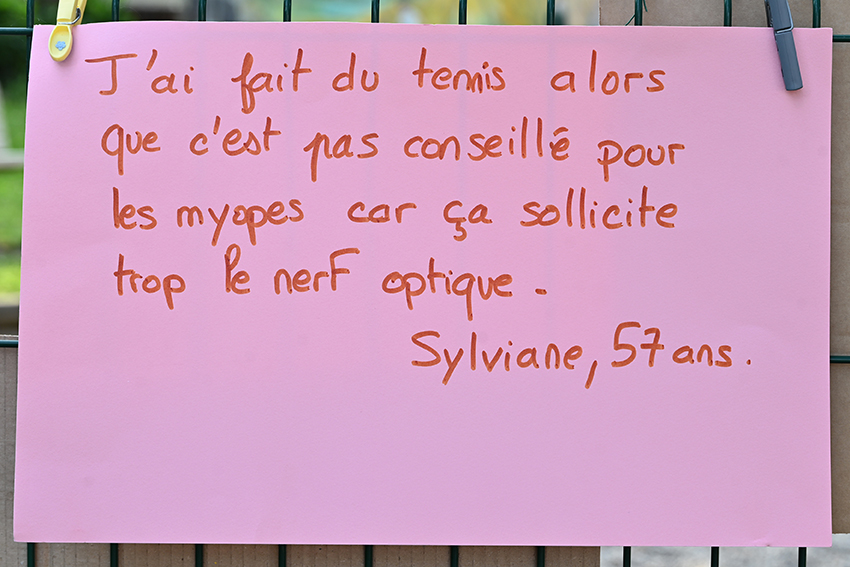 J'ai fait du tennis alors
que c'est pas conseillé pour
les myopes car ça sollicite
trop le nerf optique.
Sylviane, 57 ans.